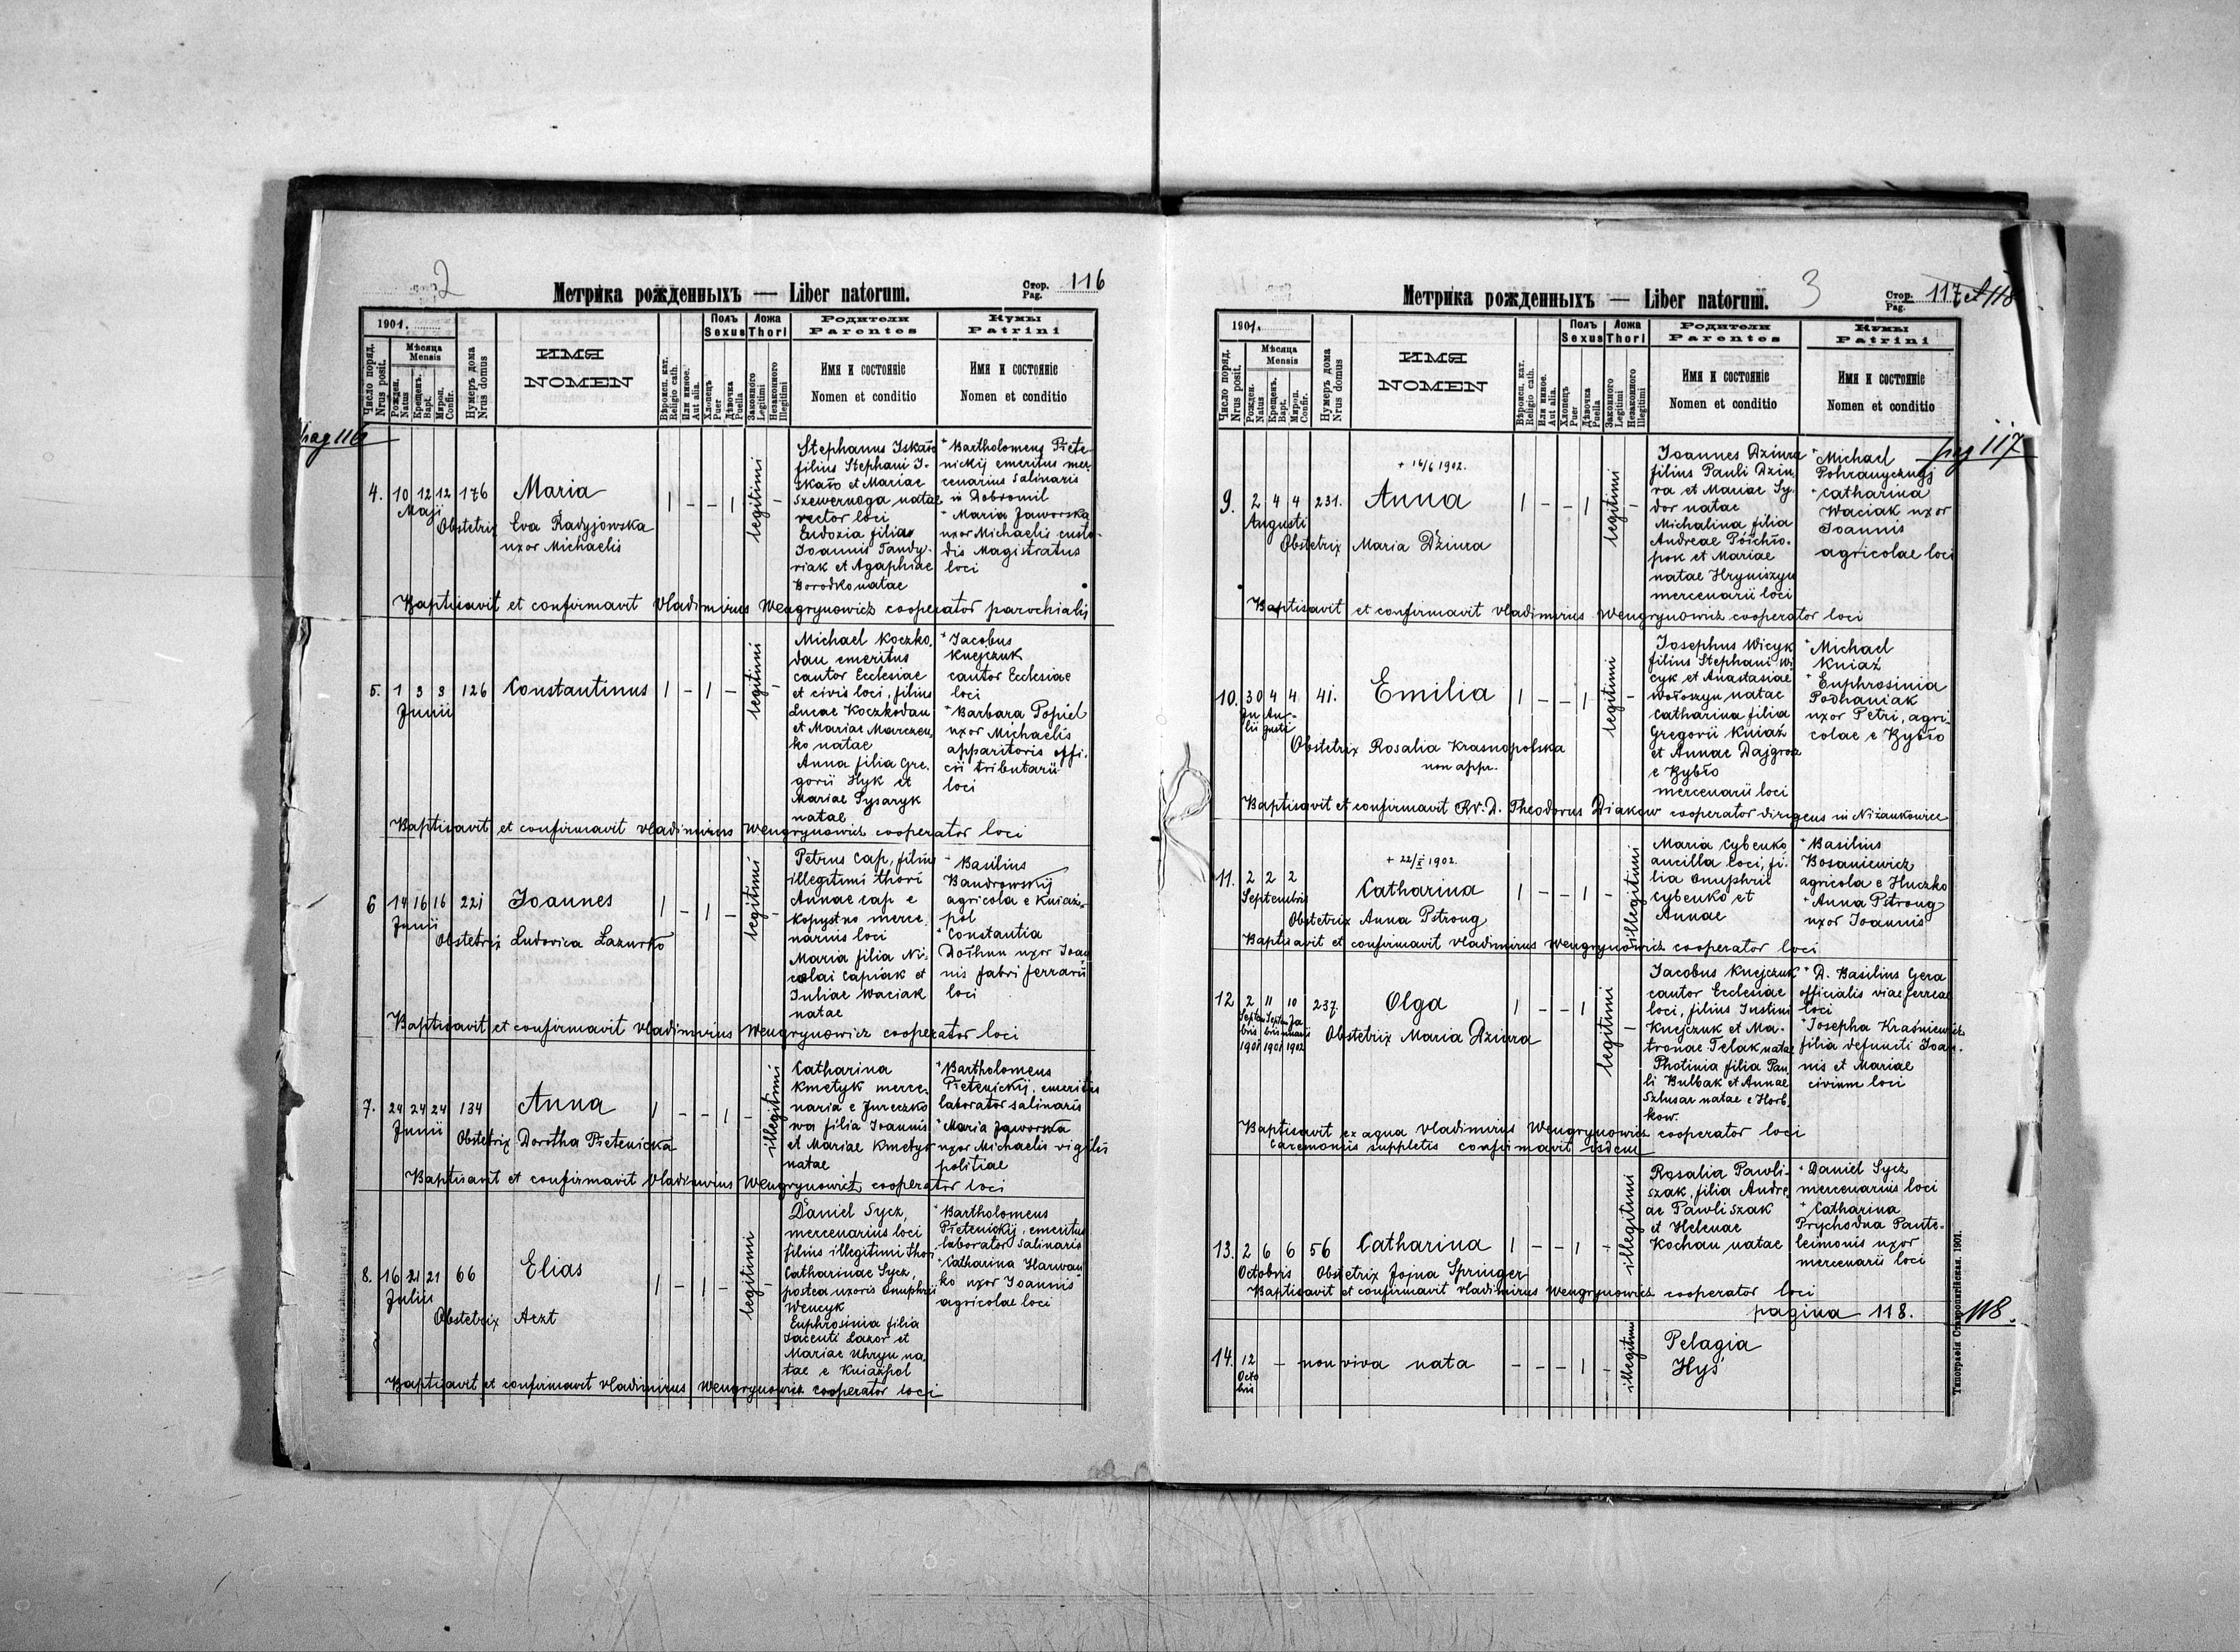 2
Метрика рожденныхъ — Liber natorum.
Стор.
Pag. 116
1901.
Число поряд.
Nrus posit.
Мѣсяца
Mensis
Рожден.
Natus
Крещенъ.
Bapt.
Мѵроп.
Confir.
Нумеръ дома
Nrus domus
ИМЯ
NOMEN
Вѣроисп. кат.
Religio cath.
Или иное.
Aut alia.
Полъ
Sexus
Хлопецъ
Puer
Дѣвочка
Puella
Ложа
Thori
Законного
Legitimi
Незаконного
Illegitimi
Родители
Parentes
Имя и состояніе
Nomen et conditio
Кумы
Patrini
Имя и состояніе
Nomen et conditio
pag 116
4. 10 12 12 176 Maria 1 – – 1 legitimi –
Maji
Obstetrix Eva Radyjowska
uxor Michaelis
Stephanus Iskało
filius Stephani I-
skało et Mariae
Szewernoga natae
vector loci
Eudoxia filia
Joannis Tandy-
riak et Agaphiae
Borodko natae
* Bartholomeus Płete-
nickij emeritus mer-
cenarius salinaris
in Dobromil
* Maria Jaworska
uxor Michaelis custo-
dis Magistratus
loci
Baptisavit et confirmavit Vladimirus Wengrynowicz cooperator parochialis
5. 1 3 3 126 Constantinus 1 – 1 – legitimi –
Junii
Michael Koczko-
dan emeritus
cantor Ecclesiae
et civis loci, filius
Lucae Koczkodan
et Mariae Marczen-
ko natae
Anna filia Gre-
gorii Hyk et
Mariae Pysaryk
natae
* Jacobus
Knejczuk
cantor Ecclesiae
loci
* Barbara Popiel
uxor Michaelis
apparitoris offi-
cii tributarii
loci
Baptisavit et confirmavit Vladimirus Wengrynowicz cooperator loci
6 14 16 16 221 Joannes 1 – 1 – legitimi –
Junii
Obstetrix Ludovica Lazurko
Petrus Cap, filius
illegitimi thori
Annae Cap e
Kopystno merce-
narius loci
Maria filia Ni-
colai Capiak et
Juliae Waciak
natae
* Basilius
Bandrowskij
agricola e Kniaż-
pol
* Constantia
Dołhun uxor Joan-
nis fabri ferrarii
loci
Baptisavit et confirmavit Vladimirus Wengrynowicz cooperator loci
7. 24 24 24 134 Anna 1 – – 1 – illegitimi
Junii
Obstetrix Dorotha Płetenicka
Catharina
Kmetyk merce-
naria e Jureczko
wa filia Joannis
et Mariae Kmetyk
natae
* Bartholomeus
Płetenickij, emeritus
laborator salinaris
* Maria Jaworska
uxor Michaelis vigilis
politiae
Baptisavit et confirmavit Vladimirus Wengrynowicz cooperator loci
8. 16 21 21 66 Elias 1 – 1 – legitimi –
Julii
Obstetrix Aezt
Daniel Sycz,
mercenarius loci
filius illegitimi thori
Catharinae Sycz,
postea uxoris Onuphrii
Wencyk
Euphrosinia filia
Jacenti Lazor et
Mariae Uhryn na-
tae e Kniażpol
* Bartholomeus
Płetenickij, emeritus
laborator salinaris
* Catharina Harwan-
ko uxor Joannis
agricolae loci
Baptisavit et confirmavit Vladimirus Wengrynowicz cooperator loci
Метрика рожденныхъ — Liber natorum. 3
Стор.
Pag. 117 et 118
1901.
Число поряд.
Nrus posit.
Мѣсяца
Mensis
Рожден.
Natus
Крещенъ.
Bapt.
Мѵроп.
Confir.
Нумеръ дома
Nrus domus
ИМЯ
NOMEN
Вѣроисп. кат.
Religio cath.
Или иное.
Aut alia.
Полъ
Sexus
Хлопецъ
Puer
Дѣвочка
Puella
Ложа
Thori
Законного
Legitimi
Незаконного
Illegitimi
Родители
Parentes
Имя и состояніе
Nomen et conditio
Кумы
Patrini
Имя и состояніе
Nomen et conditio
pag 117
+ 16/6 1902.
9. 2 4 4 231. Anna 1 – – 1 legitimi –
Augusti
Obstetrix Maria Dziura
Joannes Dziura
filius Pauli Dziu-
ra et Mariae Sy-
dor natae
Michalina filia
Andreae Póichło-
pok et Mariae
natae Hryniszyn
mercenarii loci
* Michael
Pohranycznyj
* Catharina
Waciak uxor
Joannis
agricolae loci
Baptisavit et confirmavit Vladimirus Wengrynowicz cooperator loci
10. 30 4 4 41. Emilia 1 – – 1 legitimi –
Ju Au-
lii gusti
Obstetrix Rosalia Krasnopolska
non appr.
Josephus Wicyk
filius Stephani Wi-
cyk et Anastasiae
Wołoszyn natae
Catharina filia
Gregorii Kniaź
et Annae Dajgroz
e Rybło
mercenarii loci
* Michael
Kniaź
* Euphrosinia
Podhaniak
uxor Petri, agri-
colae e Rybło
Baptisavit et confirmavit Rv. D. Theodorus Diakow cooperator dirigens in Niżankowice
+ 22/I 1902.
11. 2 2 2 Catharina 1 – – 1 – illegitimi
Septembris
Obstetrix Anna Pstrong
Maria Cybenko
ancilla loci, fi-
lia Onuphrii
Cybenko et
Annae
* Basilius
Bosaniewicz
agricola e Huczko
* Anna Pstrong
uxor Joannis
Baptisavit et confirmavit Vladimirus Wengrynowicz cooperator loci
12 2 11 10 237. Olga 1 – – 1 legitimi –
Septem Septem Ja
bris bris nuarii
1901 1901 1902
Obstetrix Maria Dziura
Jacobus Knejczuk
cantor Ecclesiae
loci, filius Justini
Knejczuk et Ma-
tronae Telak natae
Photinia filia Pau-
li Bulbak et Annae
Szlusar natae e Horb-
kow.
* D. Basilius Gera
officialis viae ferreae
loci
* Josepha Kraśniewicz
filia defuncti Joan-
nis et Mariae
civium loci
Baptisavit ex aqua Vladimirus Wengrynowicz cooperator loci
caremoniis suppletis confirmavit isdem
13. 2 6 6 56 Catharina 1 – – 1 + illegitimi
Octobris
Obstetrix Jojna Springer
Rosalia Pawli-
szak, filia Andre-
ae Pawliszak
et Helenae
Kochan natae
* Daniel Sycz
mercenarius loci
* Catharina
Prychodna Pante-
leimonis uxor
mercenarii loci
Baptisavit et confirmavit Vladimirus Wengrynowicz cooperator loci
pagina 118. 118.
14. 12 – non viva nata – – – 1 – illegitimi
Octo
bris
Pelagia
Hyś
Типографія Ставропигійская. 1901.